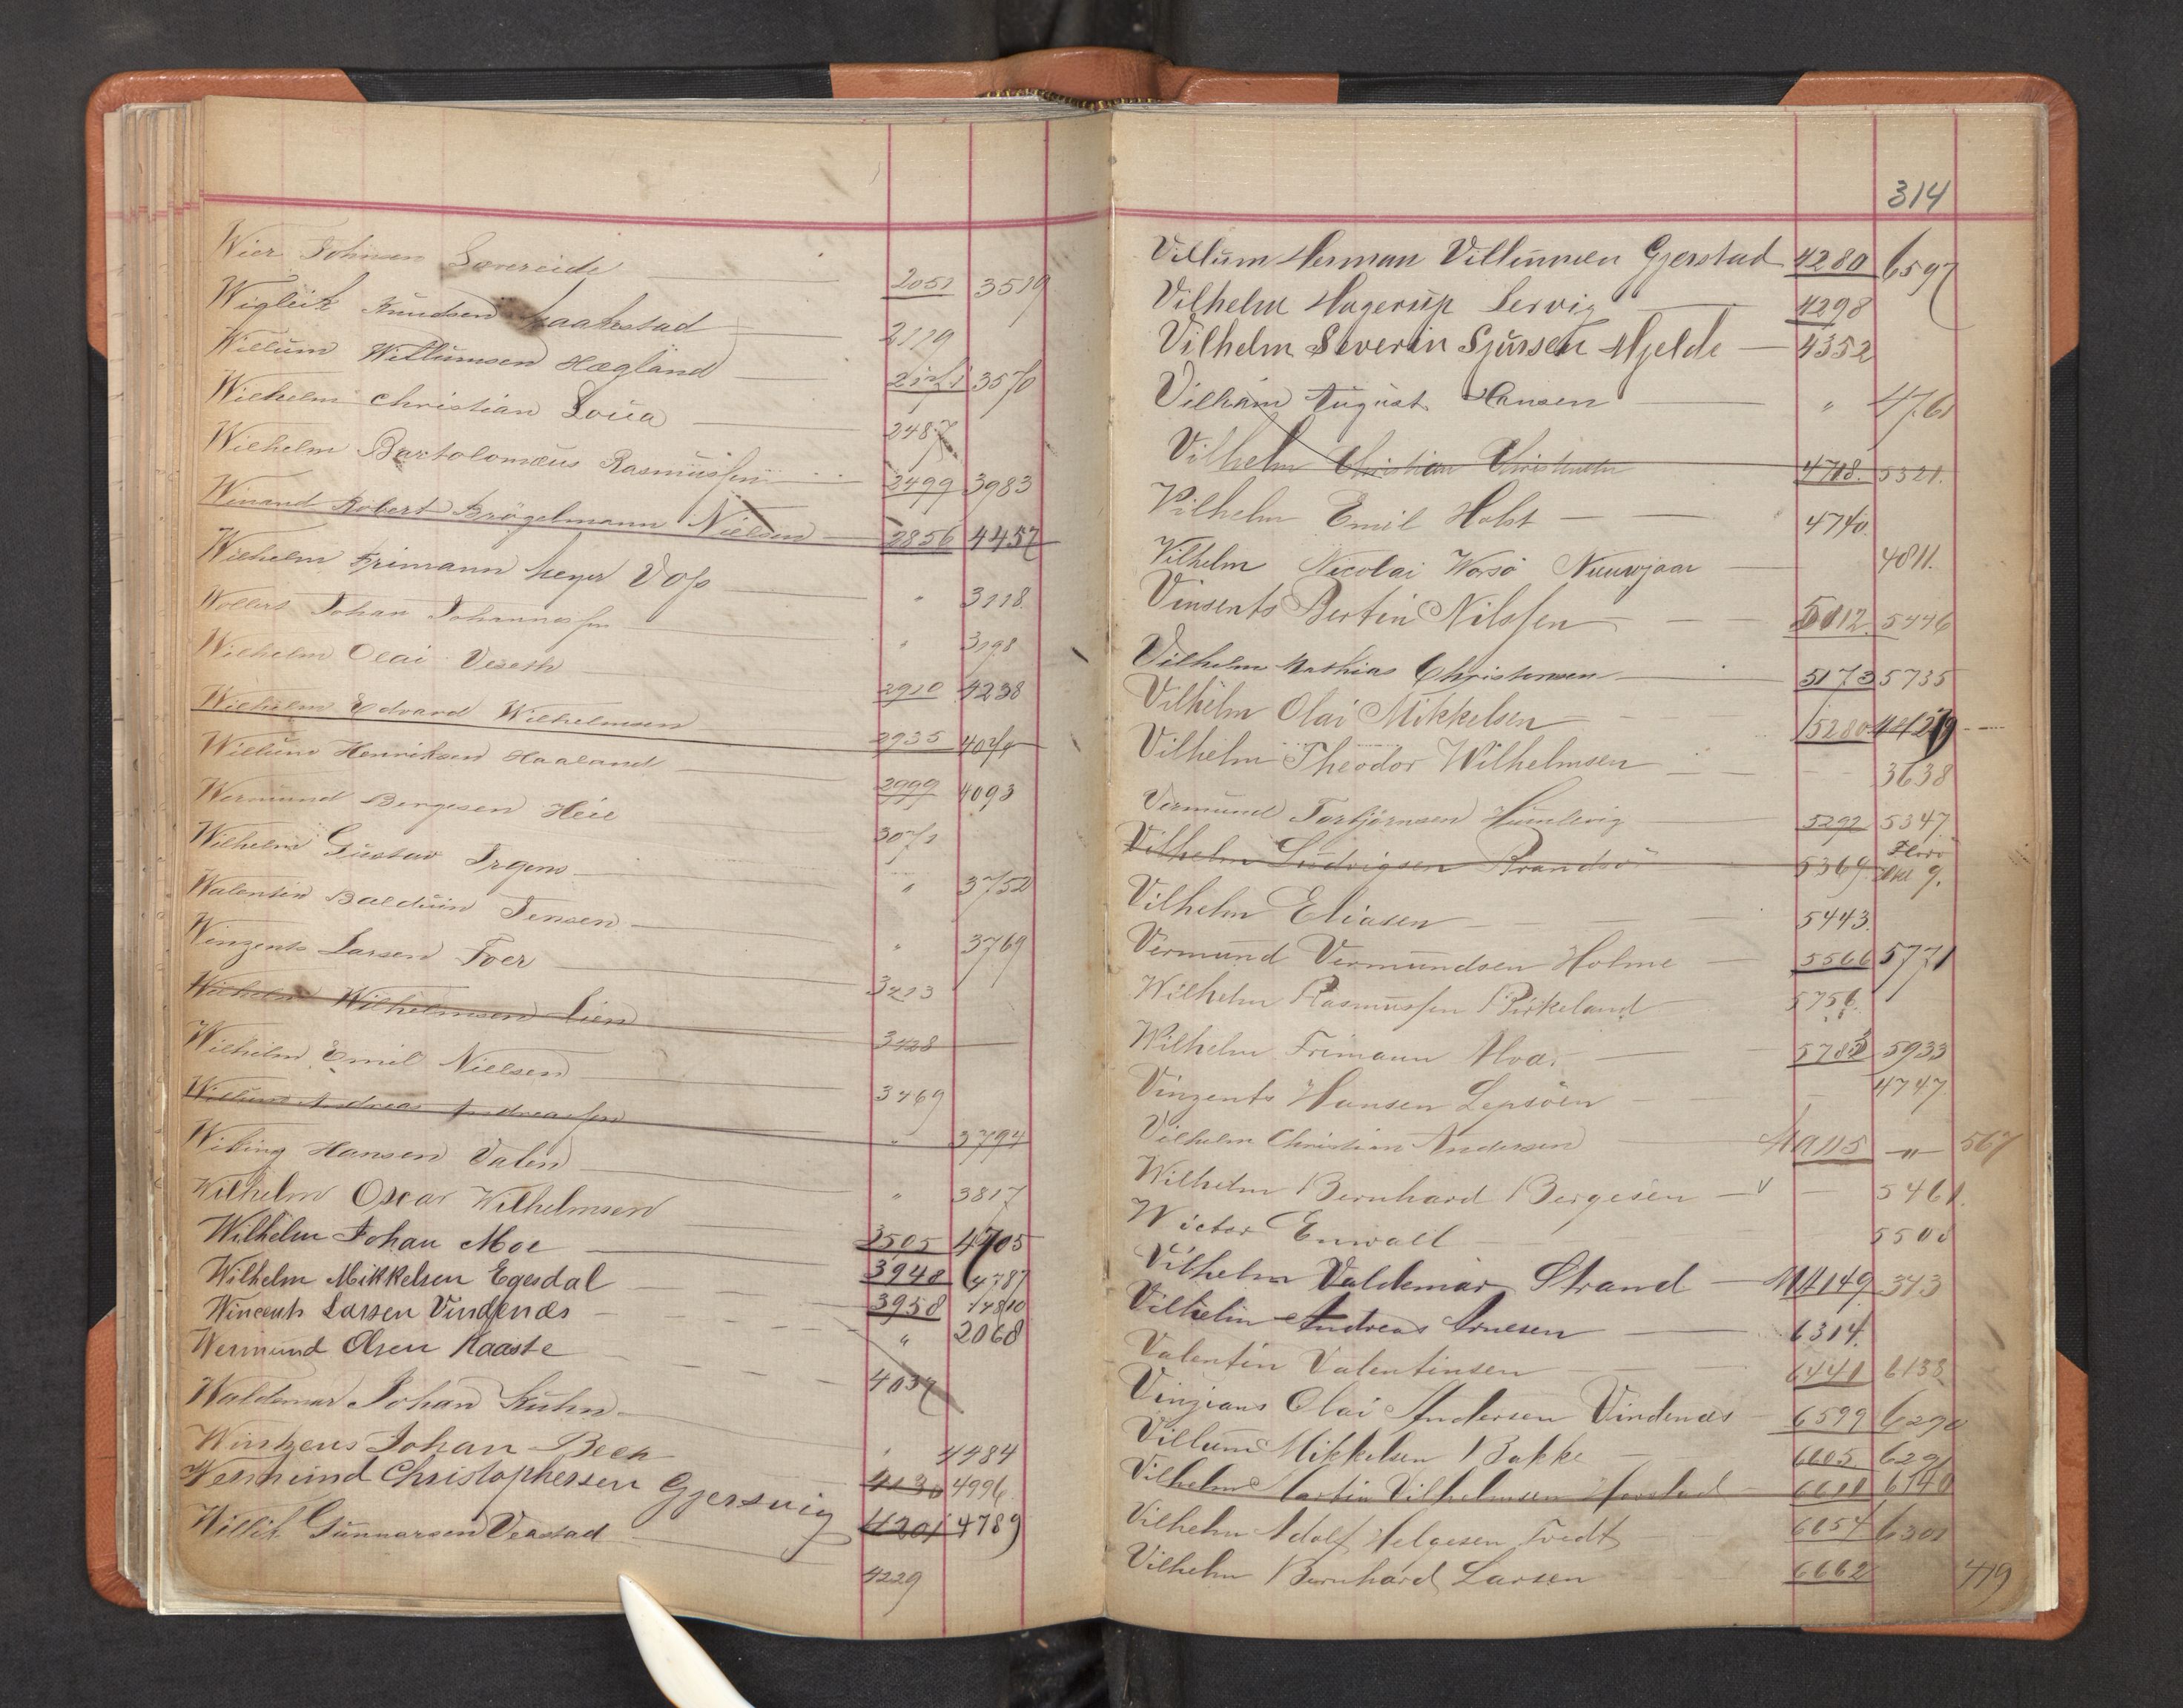 Wier Johnsen Sævereide 2051 3519
Wigleik Knudsen Laakestad 2119
Willum Willumsen Hægland 2171 3570
Wilhelm Christian Loua 2487
Wilhelm Bartolomæus Rasmussen 2499 3983
Winand Robert Brögelmann Nielsen 2856 4457
Wilhelm Frimann Meyer Voss " 3118
Wollert Johan Johannessen " 3198
Wilhelm Olai Veseth 2910 4238
Wilhelm Edvard Wilhelmsen 2935
Willum Henriksen Haaland 2999 4093
Wermund Børgesen Heie 3071
Wilhelm Gustav Irgens " 3752
Walentin Balduin Jensen " 3769
Winzents Larsen Foer
Wilhelm Wilhelmsen Lien 3428
Wilhelm Emil Nielsen 3469
Willum Andreas Andreassen " 3794
Wiking Hansen Valen " 3817
Wilhelm Oscar Wilhelmsen 3505 4705
Wilhelm Johan Moe 3948 4787
Wilhelm Mikkelsen Egesdal 3958 14810
Wincents Larsen Vindenæs " 2068
Wermund Olsen Kaaste 4037
Waldemar Johan Kuhn " 4484
Wintzens Johan Beck 4130 4996
Wermund Christophersen Gjersvig 4201 4789
Willik Gunnarsen Vevstad 4229
314
Villum Herman Villumsen Gjerstad 4280 6597
Vilhelm Hagerup Servig 4298
Vilhelm Severin Sjursen Mjelde 4352
Vilhelm August Hansen " 4761
Vilhelm Christian Christensen 4718 5321
Vilhelm Emil Holst 4740
Vilhelm Nicolai Worsö Nuuwjaar 4811
Vinsents Bertin Nilssen 5112 5446
Vilhelm Mathias Christensen 5173 5735
Vilhelm Olai Mikkelsen 5280
Vilhelm Theodor Wilhelmsen 3638
Vermund Torbjörnsen Humlevig 5292 5347
Vilhelm Ludvigsen Brandsö 5369 9.
Vilhelm Eliasen 5443
Vermund Vermundsen Holme 5566 5771
Wilhelm Rasmussen Birkeland 5756
Wilhelm Frimann Moa 5783 5933
Vinzents Hansen Lepsöen 4747
Vilhelm Christian Andersen 567
Wilhelm Bernhard Børgesen 5461
Wictor Enwall 5508
Vilhelm Valdemar Strand 343
Vilhelm Andreas Arnesen 6314
Valentin Valentinsen 6441 6138
Vinzians Olai Andersen Vindenæs 6599 6290
Villum Mikkelsen Bakke 6605 6291
Vilhelm Martin Vilhelmsen 6611 6140
Vilhelm Adolf Helgesen Tvedt 6654 6301
Vilhelm Bernhard Larsen 6662 419